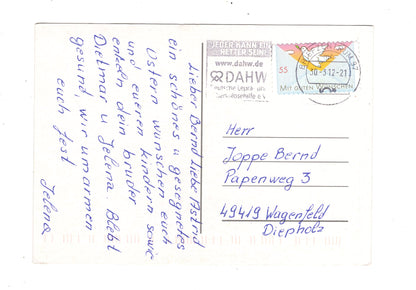 Lieber Bernd Liebe Astrid
ein schönes u gesegnetes
Ostern wünschen euch
und euren kindern sowie
enkeln dein bruder
Dietmar u Jelena. Bleibt
gesund wir umarmen
euch fest
Jelena
JEDER KANN EIN
RETTER SEIN!
www.dahw.de
DAHW
Deutsche Lepra- und
Tuberkulosehilfe e.V.
55
30.-3.12-21
Mit guten Wünschen
Herr
Joppe Bernd
Papenweg 3
49419 Wagenfeld
Diepholz